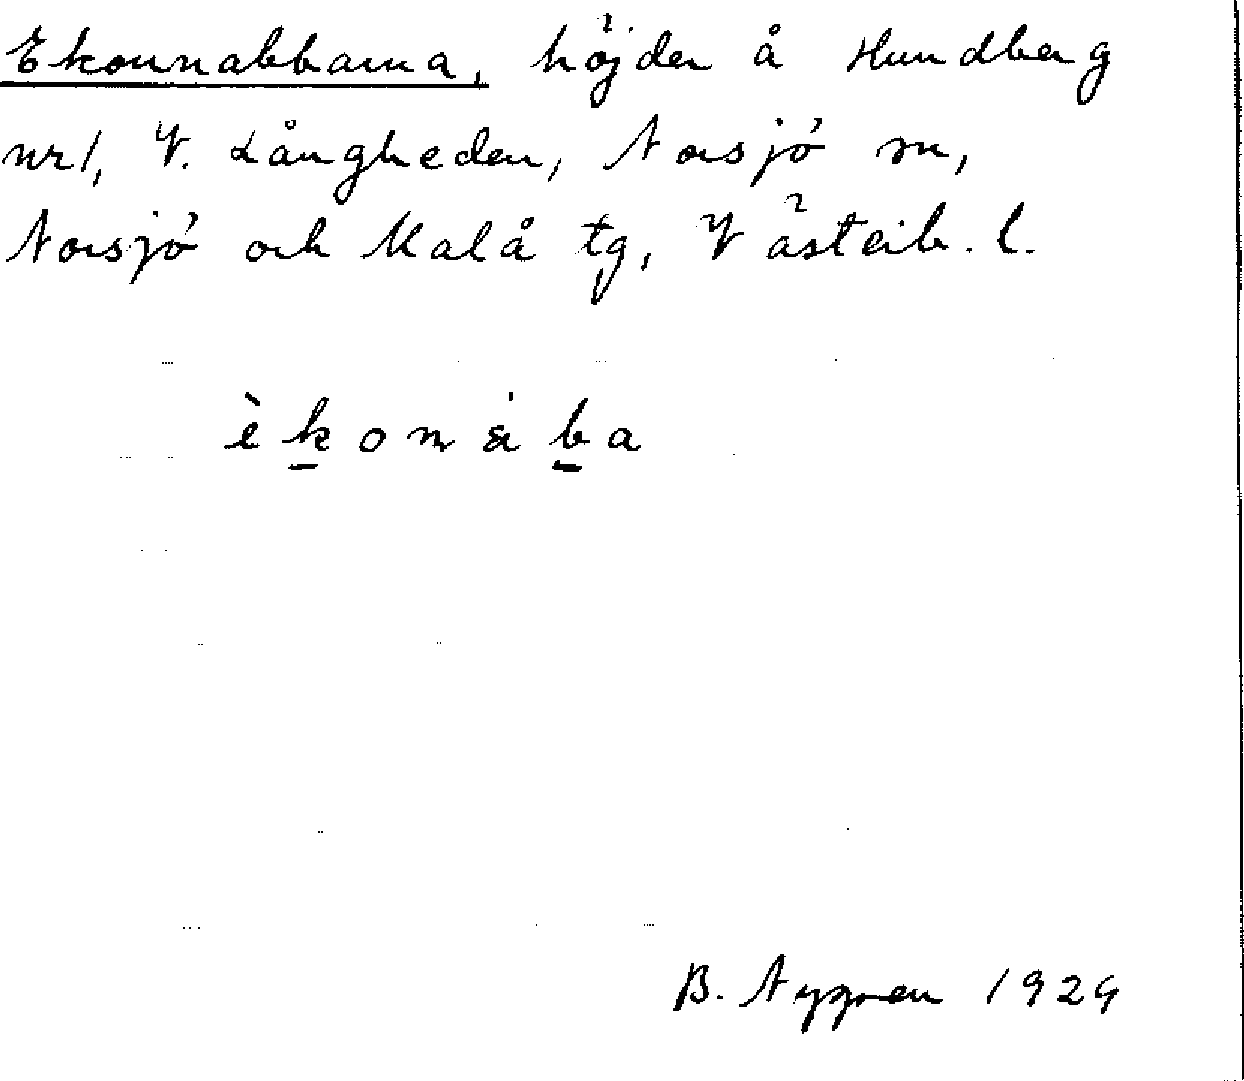 Ekornnabbarna, höjder å Hundberg
nr1, V. Långheden, Norsjö sn,
Norsjö och Malå tg, Västerb. l.
èkonába
B. Nygren 1929